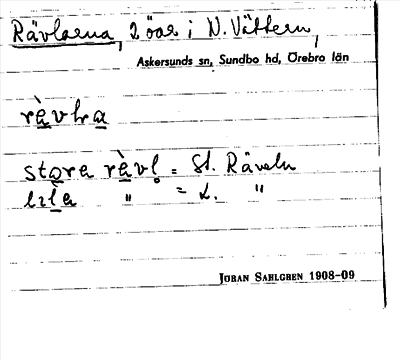 Rävlarna, 2 öar i N. Vättern,
Askersunds sn, Sundbo hd, Örebro län
stora rävl = St. Räveln
lila " = L. "
Jöran Sahlgren 1908-09